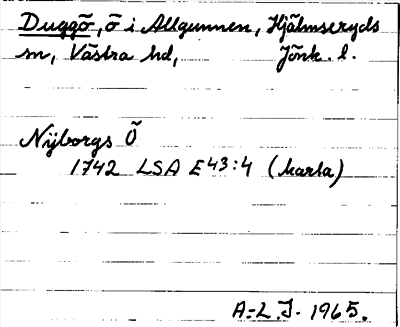 Duggö, ö i Allgunnen, Hjälmseryds
sn, Västra hd, Jönk. l.
Nÿborgs Ö
1742 LSA E43:4 (karta)
A=L.J. 1965.